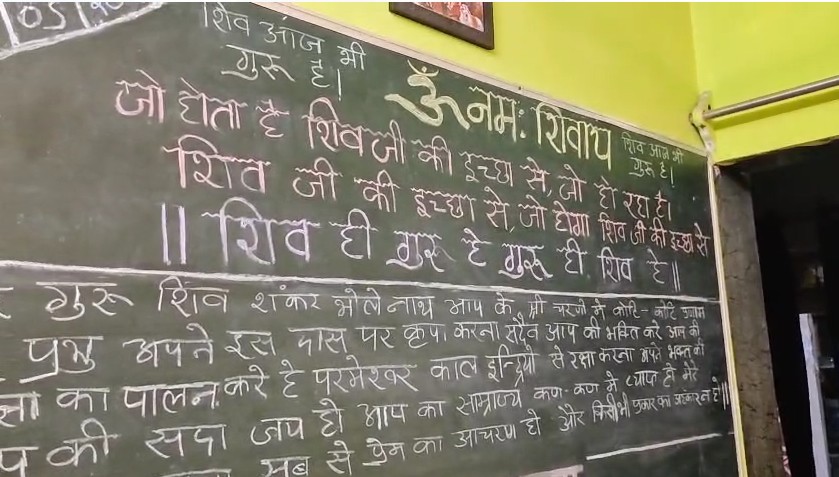 05
शिव आज भी
गुरू है।
ॐ नमः शिवाय
शिव आज भी
गुरू है।
जो होता है शिवजी की इच्छा से, जो हो रहा है।
शिव जी की इच्छा से, जो होगा शिव जी की इच्छा से
॥ शिव ही गुरू है गुरू ही शिव है॥
गुरू शिव शंकर भोले नाथ आप के श्री चरणो मे कोटि-कोटि प्रणाम
प्रभु अपने इस दास पर कृपा करना सदैव आप की भक्ति करे आप की
का पालन करे हे परमेश्वर काल इन्द्रियो से रक्षा करना अपने भक्त की
की सदा जय हो आप का साम्राज्य कण-कण मे व्याप्त हो मेरे
सब से प्रेम का आचरण हो और किसी भी प्रकार का अहंकार ना हो॥